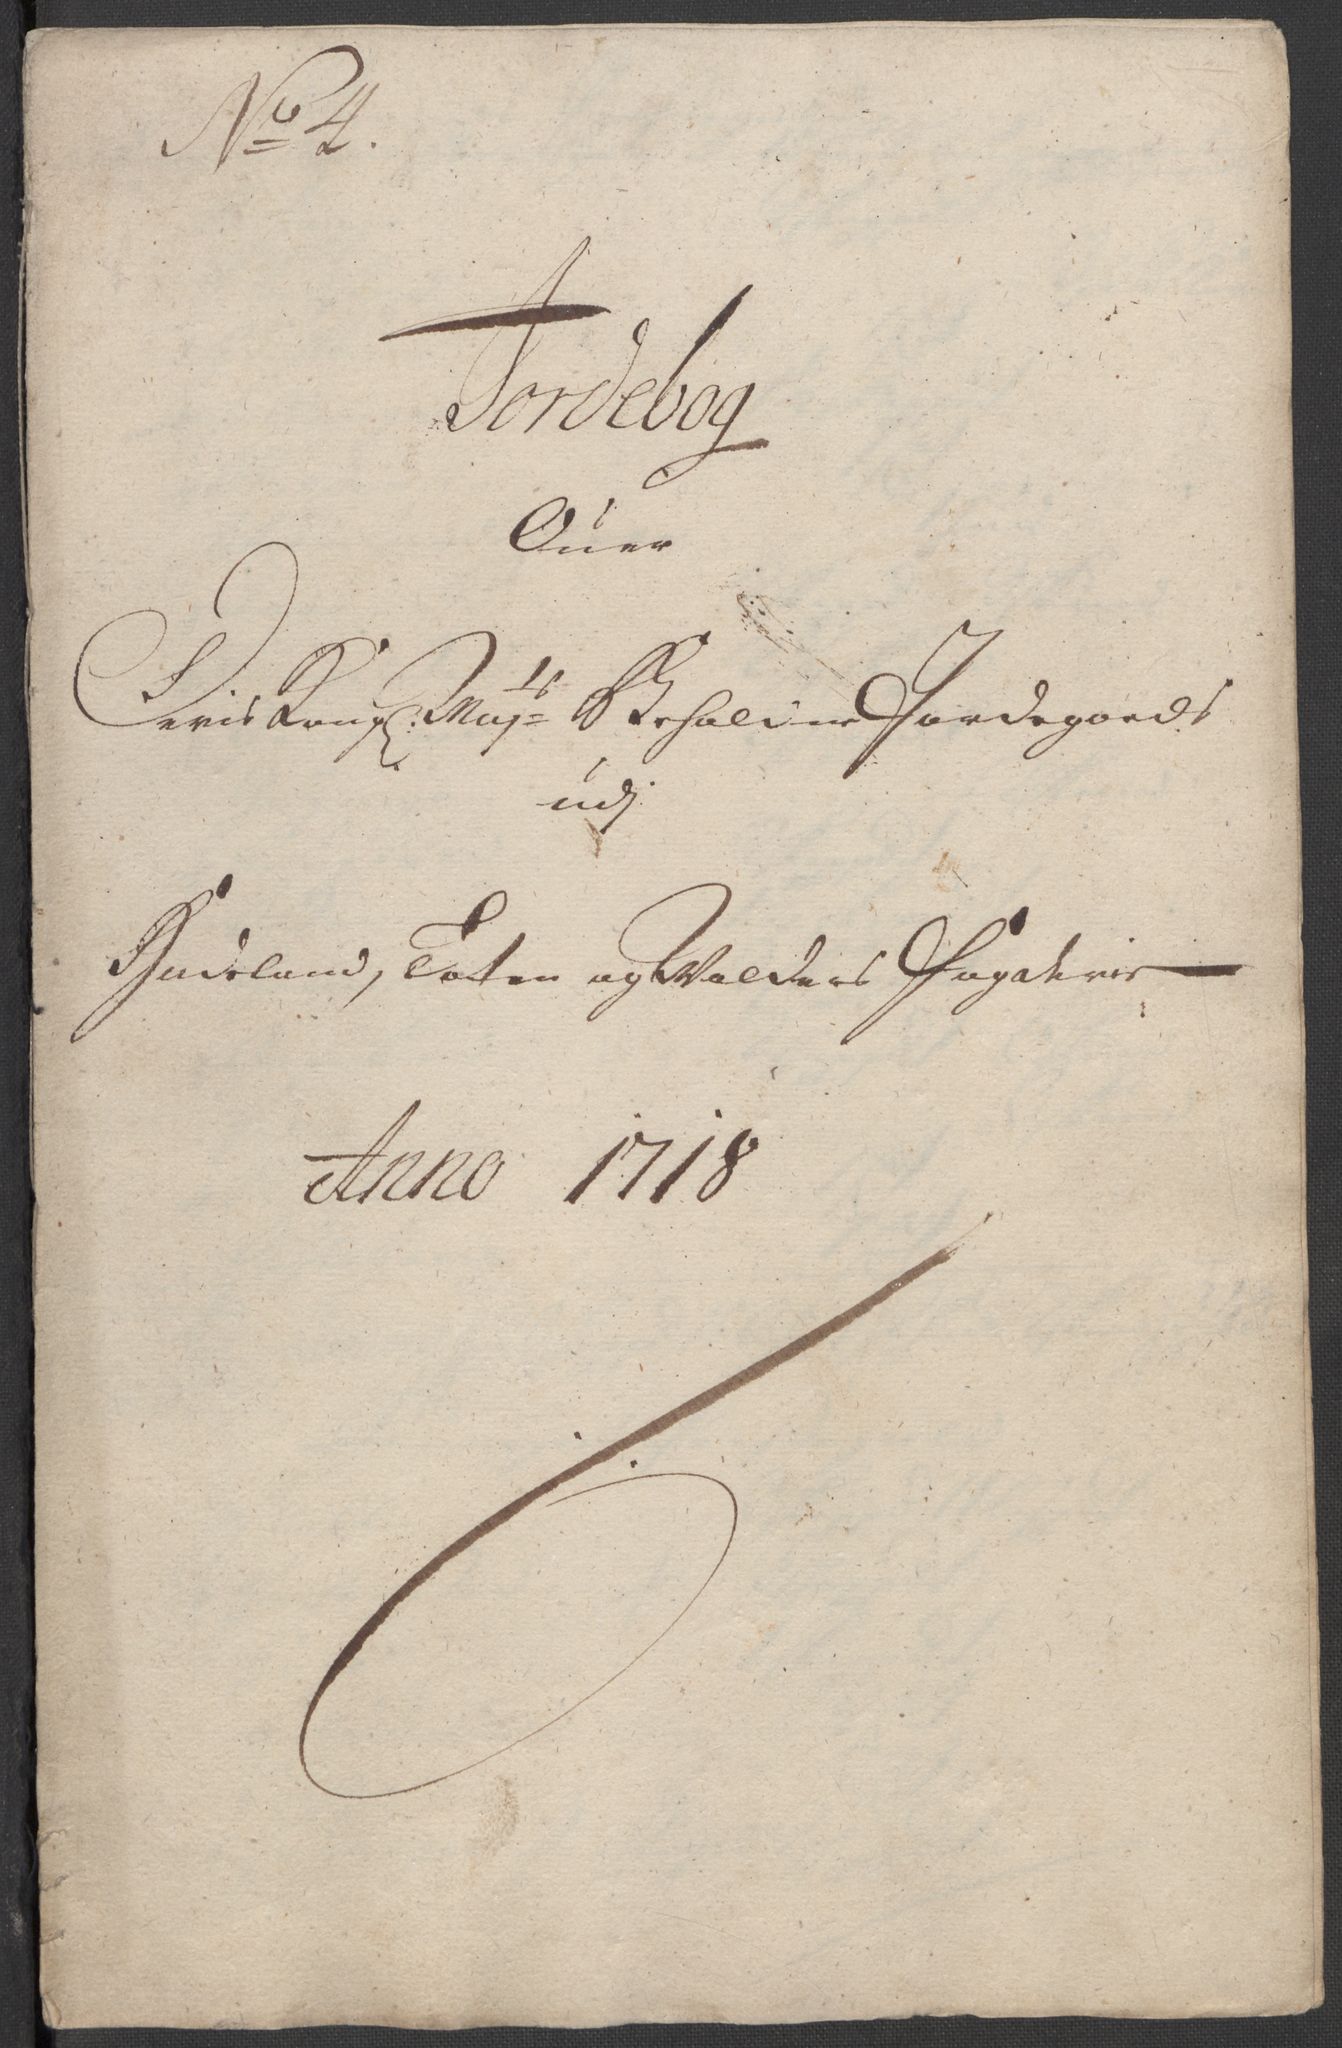 No 4.
Jordebog
Ouer
Hvis Kongl: Mayts Beholdne Jordegoeds
udj
Hadeland, Toten og Walders Fogderie
Anno 1718